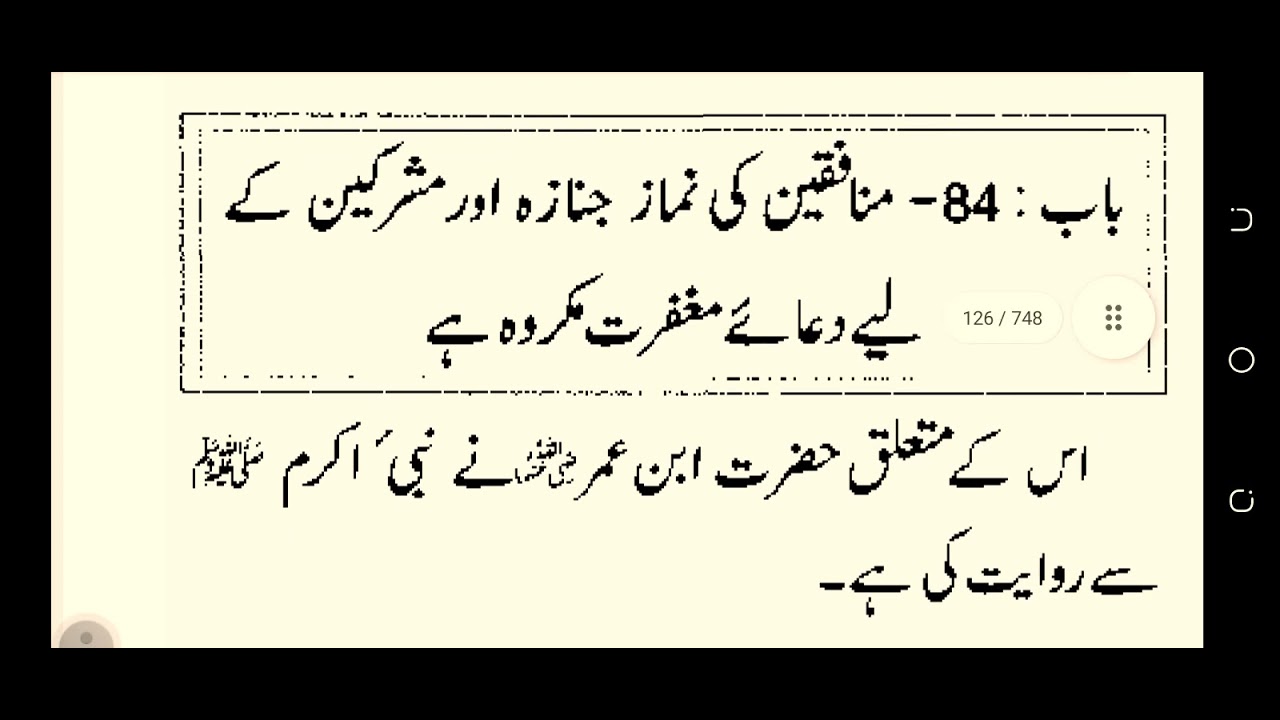 باب : 84- منافقین کی نماز جنازہ اور مشرکین کے
لیے دعائے مغفرت مکروہ ہے
126 / 748
اس کے متعلق حضرت ابن عمر رضی اللہ عنہما نے نبیٔ اکرم ﷺ
سے روایت کی ہے۔